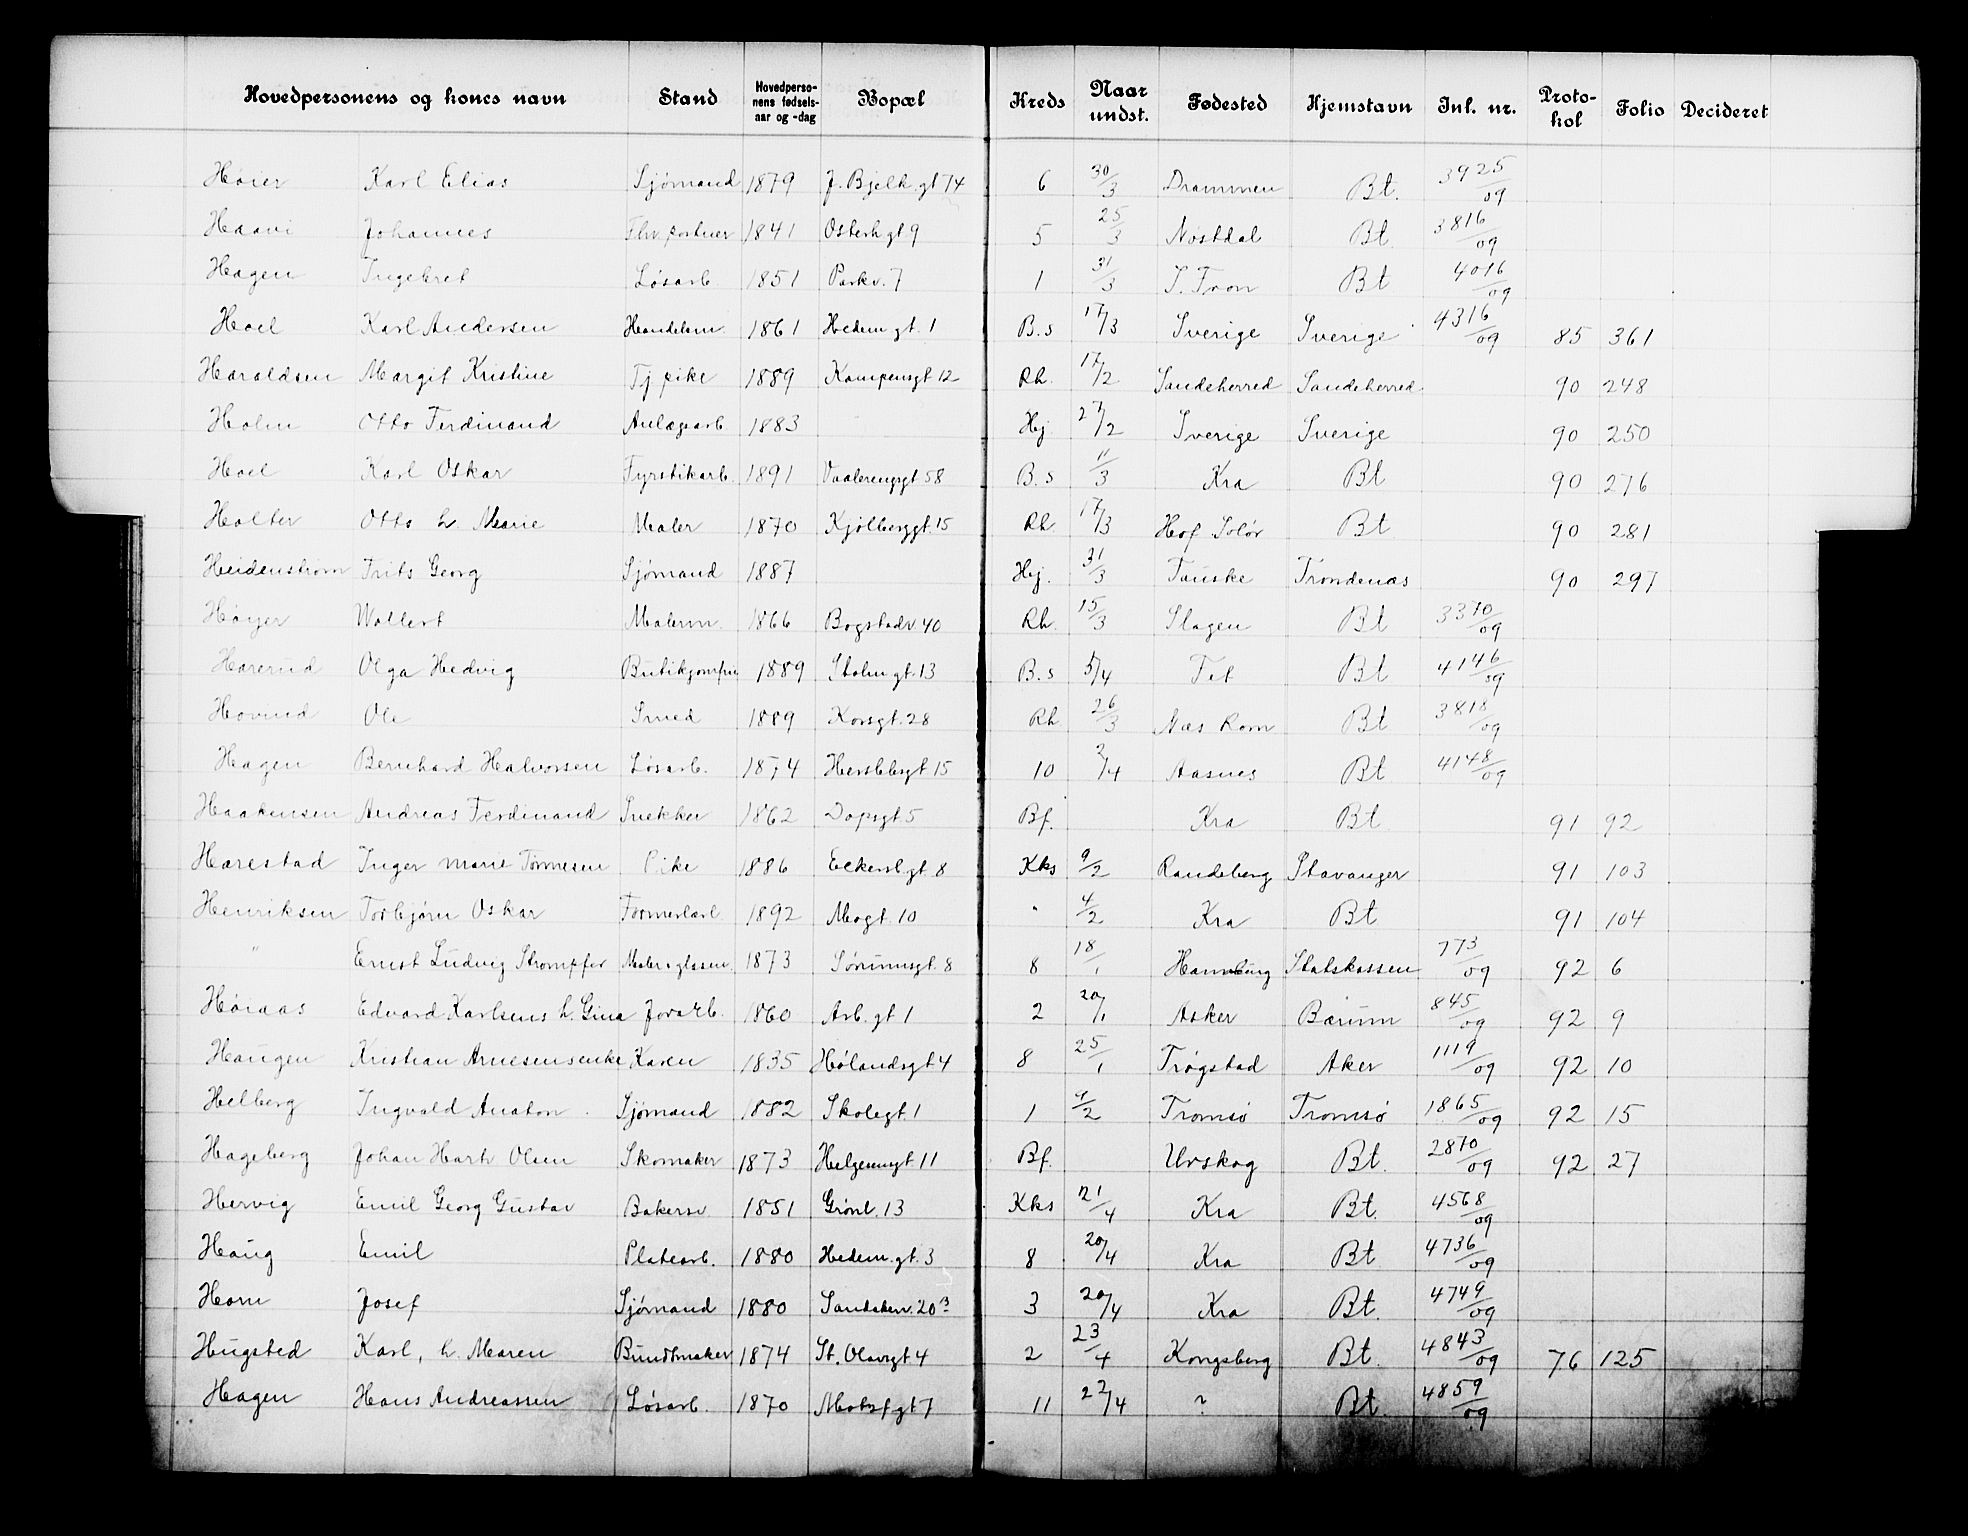 Hovedpersonens og kones navn Stand Hovedperso-nens fødsels-aar og -dag Bopæl Kreds Naar undst. Fødested Hjemstavn Inl. nr. Proto-kol Folio Decideret
Høier Karl Elias Sjømand 1879 J. Bjelk. gt 74 6 30/3 Drammen Bt. 3925/09
Haavi Johannes Fhv. portner 1841 Osterh gt 9 5 25/3 Nøstdal Bt 3816/09
Hagen Ingebret Løsarb. 1851 Parkv. 7 1 31/3 S. Fron Bt 4016/09
Hoel Karl Andersen Handelsm. 1861 Hedem gt. 1 B.s 17/3 Sverige Sverige 4316/09 85 361
Haraldsen Margit Kristine Tj pike 1889 Kampensgt 12 Rh. 17/2 Sandeherred Sandeherred 90 248
Holm Otto Ferdinand Anlægsarb 1883 Hj. 27/2 Sverige Sverige 90 250
Hoel Karl Oskar Fyrstikarb. 1891 Vaalerengsgt 58 B.s 11/3 Kra Bt 90 276
Holter Otto h. Marie Maler 1870 Kjølberggt. 15 Rh. 17/3 Hof Solør Bt 90 281
Heidenstrøm Frits Georg Sjømand 1887 Hj. 31/3 Fauske Trondenæs 90 297
Høyer Wollert Malerm. 1866 Bogstadv. 40 Rh. 15/3 Slagen Bt 3370/09
Harerud Olga Hedvig Butikjomfru 1889 Stolm gt. 13 B.s 5/4 Fet Bt 4146/09
Hovind Ole Smed 1889 Korsgt. 28 Rh 26/3 Næs Rom Bt 3818/09
Hagen Bernhard Halvorsen Løsarb. 1874 Herslebsgt 15 10 2/4 Aasnes Bt 4148/09
Haakensen Andreas Ferdinand Snekker 1862 Dopsgt 5 Bf. Kra Bt 91 92
Harestad Inger Marie Tønnesen Pike 1886 Eckersb gt. 8 Kks 9/2 Randeberg Stavanger 91 103
Henriksen Torbjørn Oskar Formerlærl. 1892 Mogt. 10 " 4/2 Kra Bt 91 104
" Ernst Ludvig Strompfer Maler o glasm. 1873 Sørumsgt. 8 8 18/1 Hamburg Statskassen 773/09 92 6
Høiaas Edvard Karlsens h. Gina Jordarb. 1860 Arb. gt 1 2 20/1 Asker Bærum 845/09 92 9
Haugen Kristian Arnesens enke Karen 1835 Hølandsgt 4 8 25/1 Trøgstad Aker 1119/09 92 10
Helberg Ingvald Anaton Sjømand 1882 Skolegt 1 1 9/2 Tromsø Tromsø 1865/09 92 15
Hageberg Johan Harts Olsen Skomaker 1873 Helgensgt 11 Bf. Urskog Bt. 2870/09 92 27
Hervig Emil Georg Gustav Bakersv. 1851 Grønl. 13 Kks 21/4 Kra Bt. 4568/09
Haug Emil Platearb. 1880 Hedem. gt. 3 8 20/4 Kra Bt 4736/09
Horn Josef Sjømand 1880 Sandakerv. 20 B 3 20/4 Kra Bt. 4749/09
Hugsted Karl, h. Maren Bundtmaker 1874 St. Olavsgt 4 2 23/4 Kongsberg Bt. 4843/09 76 125
Hagen Hans Andreassen Løsarb. 1870 Motzf gt 7 11 22/4 ? Bt. 4859/09